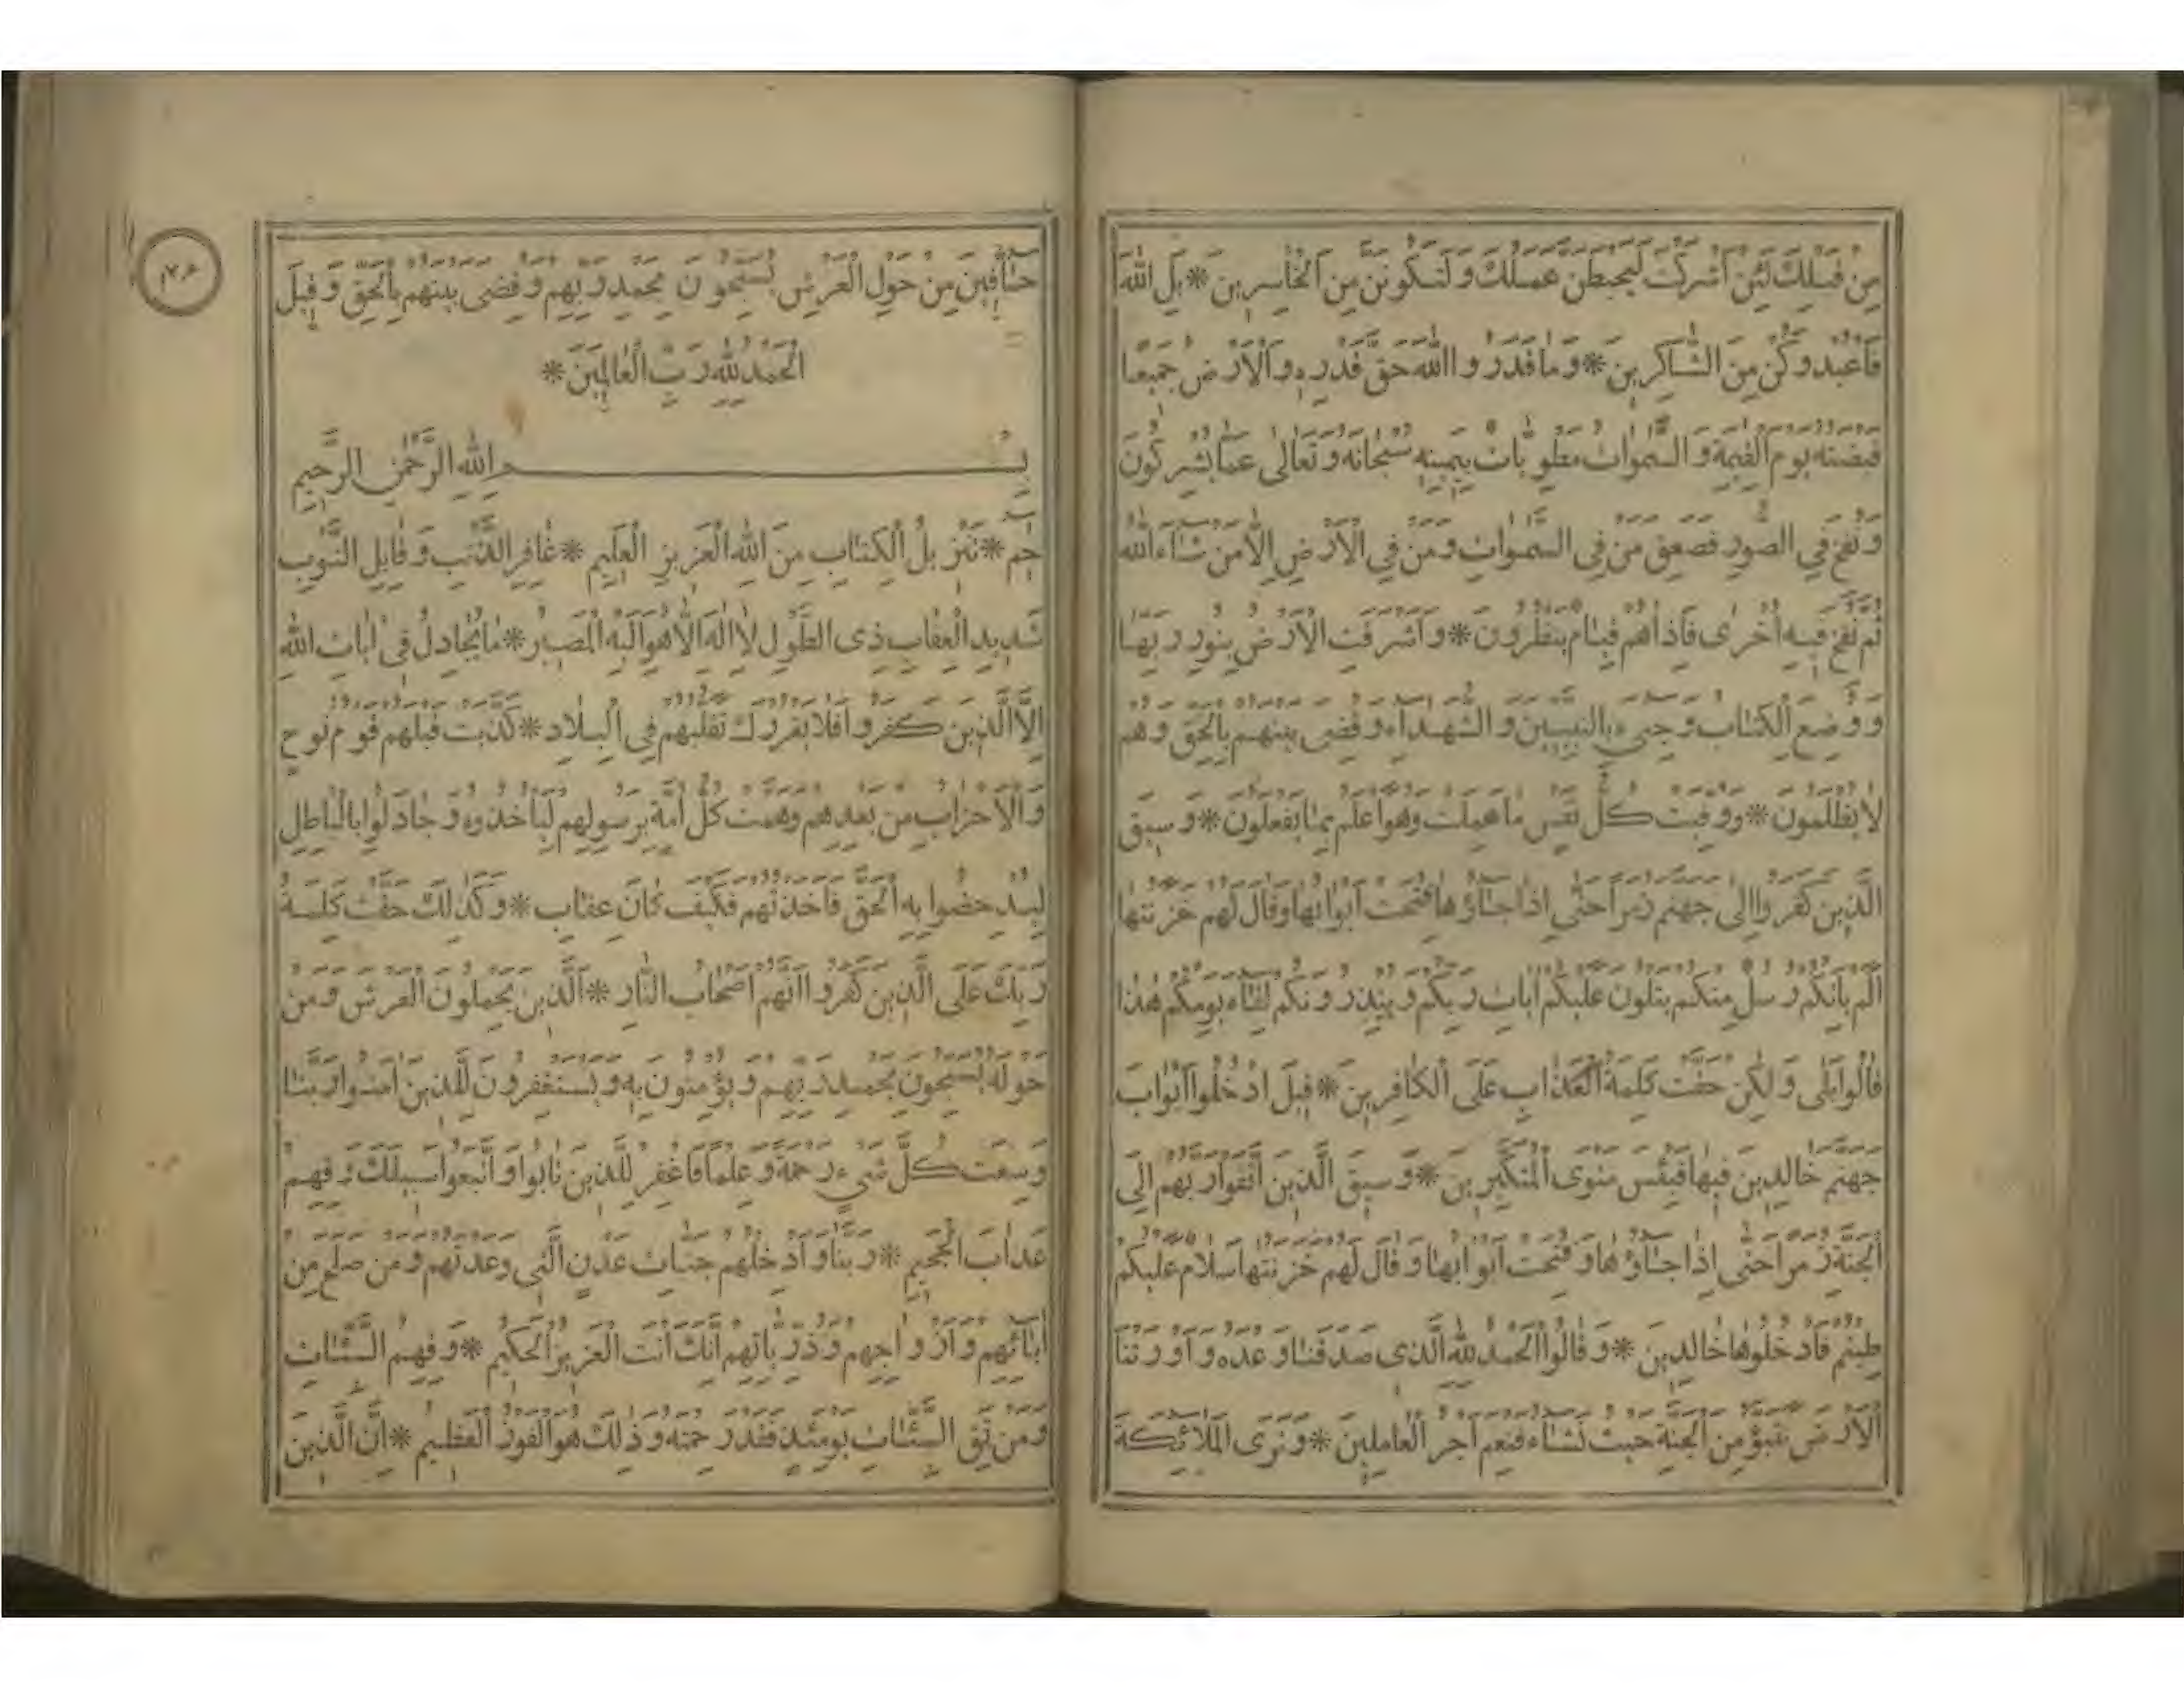 مِنْ قَبْلِكَ لَئِنْ اَشْرَكْتَ لَيَحْبَطَنَّ عَمَلُكَ وَلَتَكُونَنَّ مِنَ الْخَاسِرِينَ * بَلِ اللّٰهَ
فَاعْبُدْ وَكُنْ مِنَ الشَّاكِرِينَ * وَمَا قَدَرُوا اللّٰهَ حَقَّ قَدْرِهِ وَالْاَرْضُ جَمِيعًا
قَبْضَتُهُ يَوْمَ الْقِيٰمَةِ وَالسَّمٰوَاتُ مَطْوِيَّاتٌ بِيَمِينِهِ سُبْحَانَهُ وَتَعَالٰى عَمَّا يُشْرِكُونَ
وَنُفِخَ فِي الصُّورِ فَصَعِقَ مَنْ فِي السَّمٰوَاتِ وَمَنْ فِي الْاَرْضِ اِلَّا مَنْ شَاءَ اللّٰهُ
ثُمَّ نُفِخَ فِيهِ اُخْرٰى فَاِذَا هُمْ قِيَامٌ يَنْظُرُونَ * وَاَشْرَقَتِ الْاَرْضُ بِنُورِ رَبِّهَا
وَوُضِعَ الْكِتَابُ وَجِيءَ بِالنَّبِيِّينَ وَالشُّهَدَاءِ وَقُضِيَ بَيْنَهُمْ بِالْحَقِّ وَهُمْ
لَا يُظْلَمُونَ * وَوُفِّيَتْ كُلُّ نَفْسٍ مَا عَمِلَتْ وَهُوَ اَعْلَمُ بِمَا يَفْعَلُونَ * وَسِيقَ
الَّذِينَ كَفَرُوا اِلٰى جَهَنَّمَ زُمَرًا حَتّٰى اِذَا جَاؤُهَا فُتِحَتْ اَبْوَابُهَا وَقَالَ لَهُمْ خَزَنَتُهَا
اَلَمْ يَاْتِكُمْ رُسُلٌ مِنْكُمْ يَتْلُونَ عَلَيْكُمْ اٰيَاتِ رَبِّكُمْ وَيُنْذِرُونَكُمْ لِقَاءَ يَوْمِكُمْ هٰذَا
قَالُوا بَلٰى وَلٰكِنْ حَقَّتْ كَلِمَةُ الْعَذَابِ عَلَى الْكَافِرِينَ * قِيلَ ادْخُلُوا اَبْوَابَ
جَهَنَّمَ خَالِدِينَ فِيهَا فَبِئْسَ مَثْوَى الْمُتَكَبِّرِينَ * وَسِيقَ الَّذِينَ اتَّقَوْا رَبَّهُمْ اِلَى
الْجَنَّةِ زُمَرًا حَتّٰى اِذَا جَاؤُهَا وَفُتِحَتْ اَبْوَابُهَا وَقَالَ لَهُمْ خَزَنَتُهَا سَلَامٌ عَلَيْكُمْ
طِبْتُمْ فَادْخُلُوهَا خَالِدِينَ * وَقَالُوا الْحَمْدُ لِلّٰهِ الَّذِي صَدَقَنَا وَعْدَهُ وَاَوْرَثَنَا
الْاَرْضَ نَتَبَوَّؤُ مِنَ الْجَنَّةِ حَيْثُ نَشَاءُ فَنِعْمَ اَجْرُ الْعَامِلِينَ * وَتَرَى الْمَلَائِكَةَ
حَافِّينَ مِنْ حَوْلِ الْعَرْشِ يُسَبِّحُونَ بِحَمْدِ رَبِّهِمْ وَقُضِيَ بَيْنَهُمْ بِالْحَقِّ وَقِيلَ
الْحَمْدُ لِلّٰهِ رَبِّ الْعَالَمِينَ *
بِسْمِ اللّٰهِ الرَّحْمٰنِ الرَّحِيمِ
حٰم * تَنْزِيلُ الْكِتَابِ مِنَ اللّٰهِ الْعَزِيزِ الْعَلِيمِ * غَافِرِ الذَّنْبِ وَقَابِلِ التَّوْبِ
شَدِيدِ الْعِقَابِ ذِي الطَّوْلِ لَا اِلٰهَ اِلَّا هُوَ اِلَيْهِ الْمَصِيرُ * مَا يُجَادِلُ فِي اٰيَاتِ اللّٰهِ
اِلَّا الَّذِينَ كَفَرُوا فَلَا يَغْرُرْكَ تَقَلُّبُهُمْ فِي الْبِلَادِ * كَذَّبَتْ قَبْلَهُمْ قَوْمُ نُوحٍ
وَالْاَحْزَابُ مِنْ بَعْدِهِمْ وَهَمَّتْ كُلُّ اُمَّةٍ بِرَسُولِهِمْ لِيَاْخُذُوهُ وَجَادَلُوا بِالْبَاطِلِ
لِيُدْحِضُوا بِهِ الْحَقَّ فَاَخَذْتُهُمْ فَكَيْفَ كَانَ عِقَابِ * وَكَذٰلِكَ حَقَّتْ كَلِمَةُ
رَبِّكَ عَلَى الَّذِينَ كَفَرُوا اَنَّهُمْ اَصْحَابُ النَّارِ * اَلَّذِينَ يَحْمِلُونَ الْعَرْشَ وَمَنْ
حَوْلَهُ يُسَبِّحُونَ بِحَمْدِ رَبِّهِمْ وَيُؤْمِنُونَ بِهِ وَيَسْتَغْفِرُونَ لِلَّذِينَ اٰمَنُوا رَبَّنَا
وَسِعْتَ كُلَّ شَيْءٍ رَحْمَةً وَعِلْمًا فَاغْفِرْ لِلَّذِينَ تَابُوا وَاتَّبَعُوا سَبِيلَكَ وَقِهِمْ
عَذَابَ الْجَحِيمِ * رَبَّنَا وَاَدْخِلْهُمْ جَنَّاتِ عَدْنٍ الَّتِي وَعَدْتَهُمْ وَمَنْ صَلَحَ مِنْ
اٰبَائِهِمْ وَاَزْوَاجِهِمْ وَذُرِّيَّاتِهِمْ اِنَّكَ اَنْتَ الْعَزِيزُ الْحَكِيمُ * وَقِهِمُ السَّيِّئَاتِ
وَمَنْ تَقِ السَّيِّئَاتِ يَوْمَئِذٍ فَقَدْ رَحِمْتَهُ وَذٰلِكَ هُوَ الْفَوْزُ الْعَظِيمُ * اِنَّ الَّذِينَ